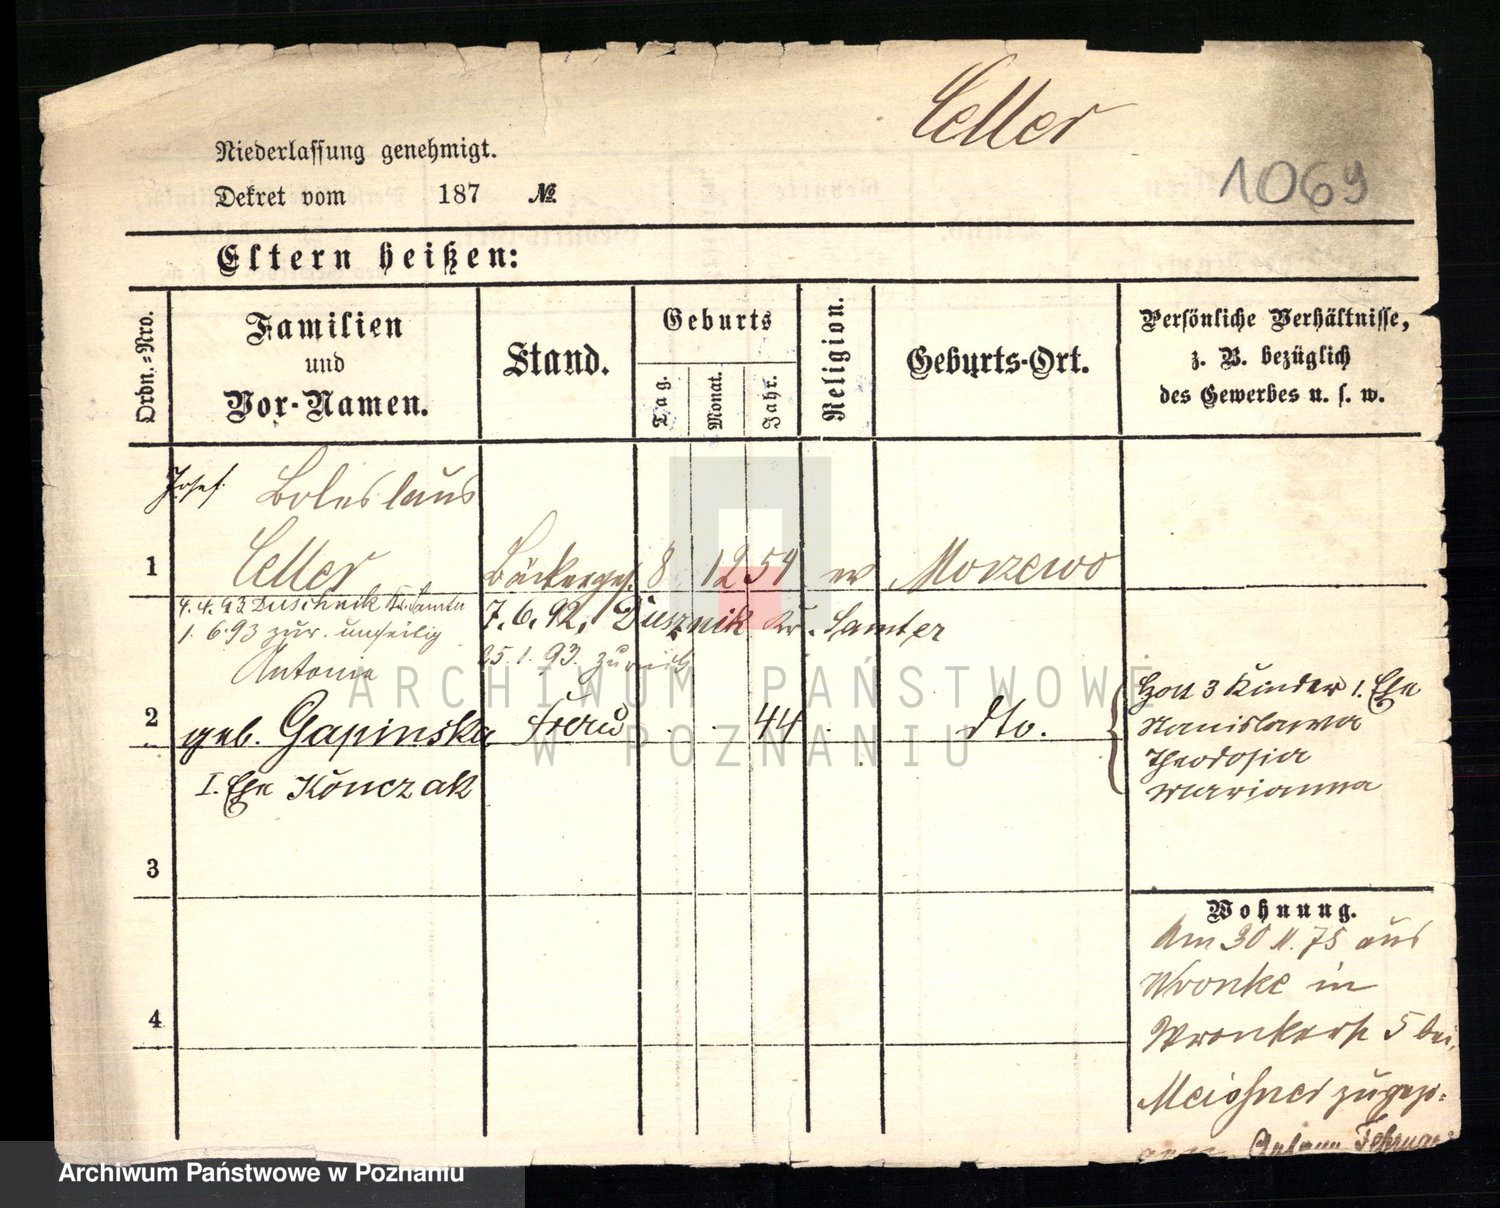 Celler
1069
Niederlassung genehmigt.
Dekret vom 187 №
Eltern heißen:
Ordn.-Nro.
Familien
und
Vor-Namen.
Stand.
Geburts
Tag.
Monat.
Jahr.
Religion.
Geburts-Ort.
Persönliche Verhältnisse,
z. B. bezüglich
des Gewerbes u. s. w.
Josef Boleslaus
1 Celler Bäckerges. 8 12 54 ev Morzewo
4.4.93 Duschnik Kr. Samter
1.6.93 zur. unseitig
7.6.92, Dusznik Kr. Samter
25.1.93. zurück
Antonie
2 geb. Gapinska Frau 44 dto.
I. Ehe Konczak
Hat 3 Kinder 1. Ehe
Stanislawa
Theodosia
Marianna
3
Wohnung.
Am 30 11. 75 aus
Wronke in
Wronkerstr 5 bei
Meissner zugezo-
4
ARCHIWUM PAŃSTWOWE
W POZNANIU
Archiwum Państwowe w Poznaniu